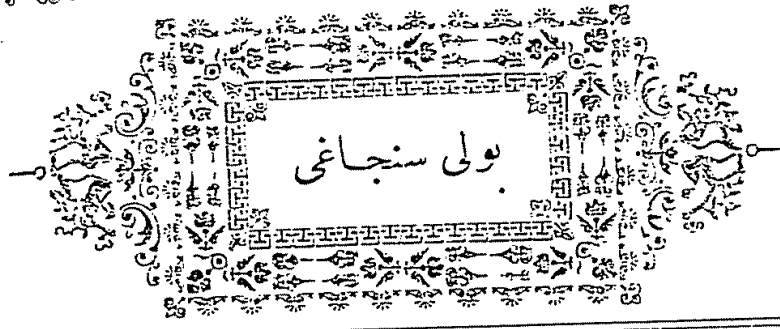 بولی سنجاغی